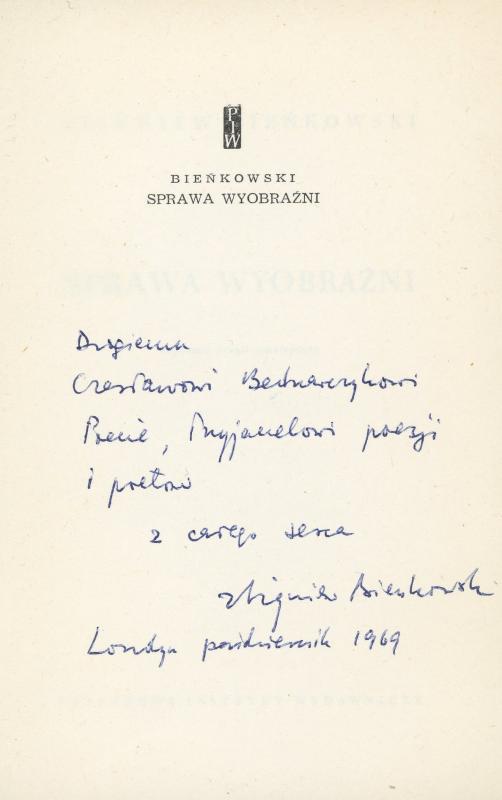 PIW
BIEŃKOWSKI
SPRAWA WYOBRAŹNI
SPRAWA WYOBRAŹNI
Drogiemu
Czesławowi Bednarczykowi
Poecie, Przyjacielowi poezji
i poetów
z całego serca
Zbigniew Bieńkowski
Londyn październik 1969